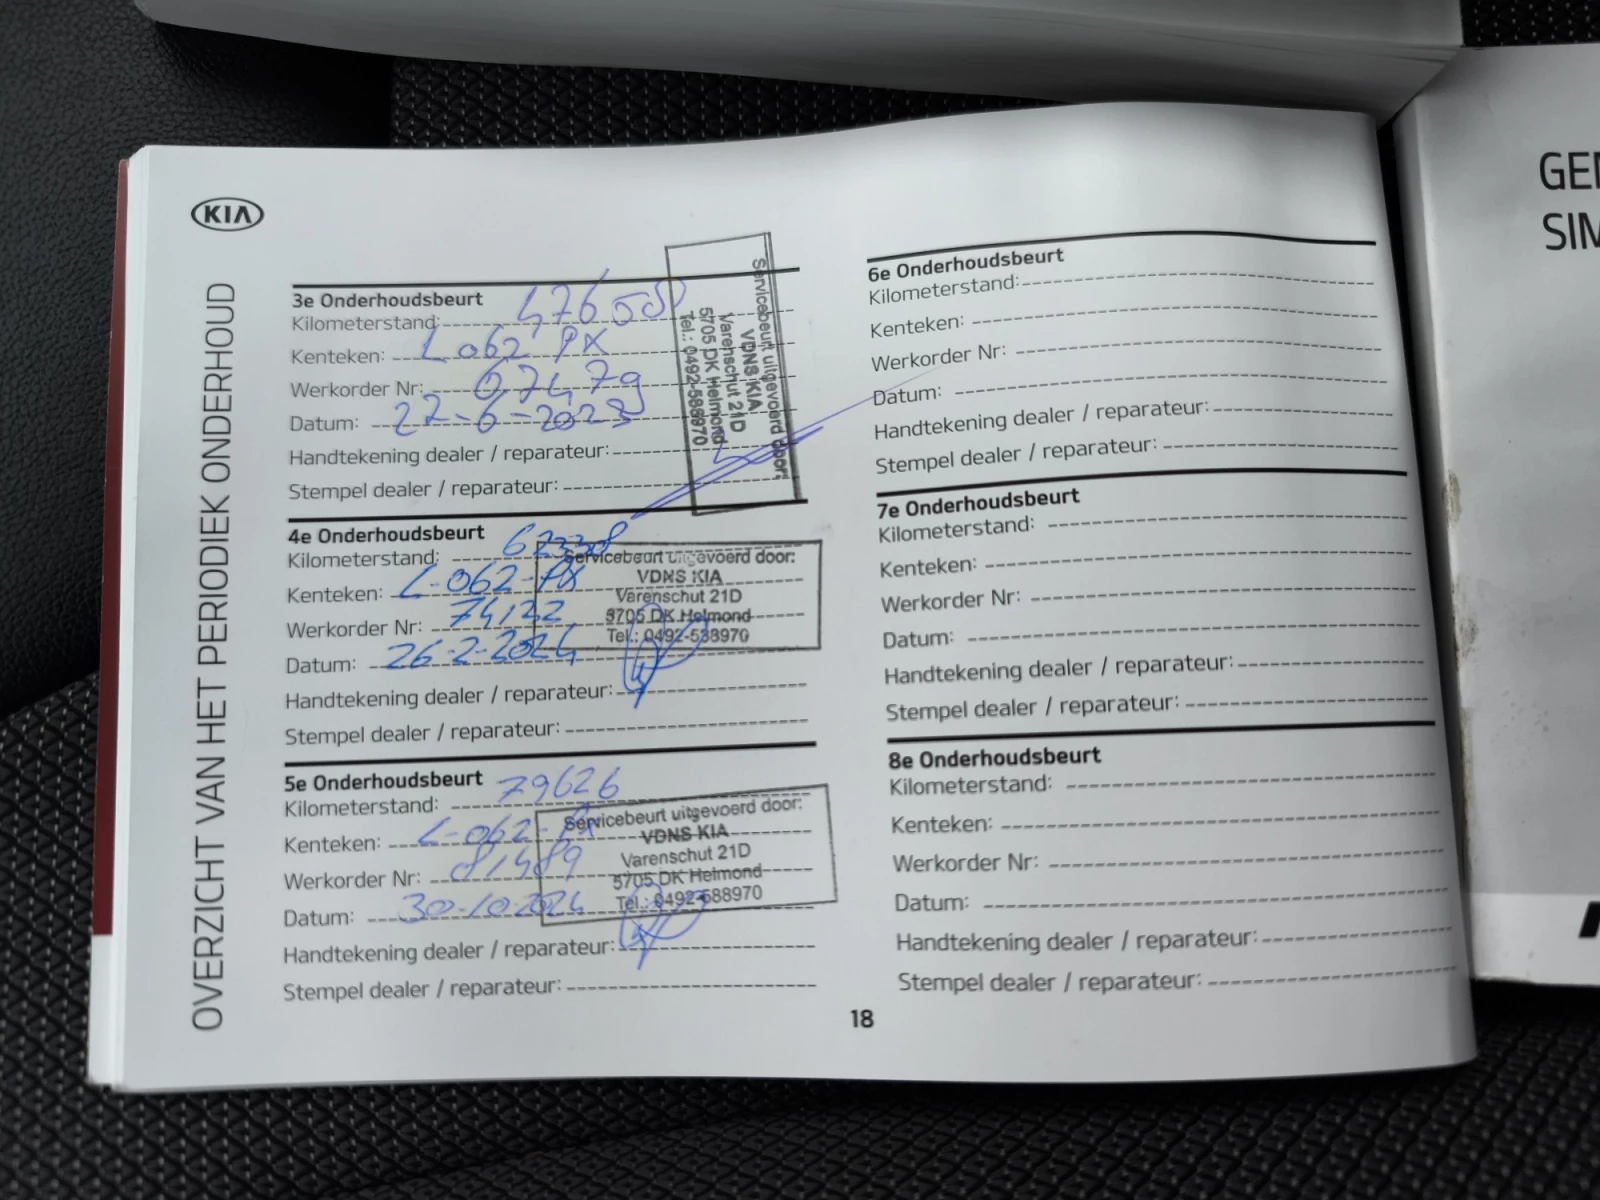 KIA
OVERZICHT VAN HET PERIODIEK ONDERHOUD
3e Onderhoudsbeurt
Kilometerstand:
Kenteken: L062 PX
Werkorder Nr: 67479
Datum: 22-6-2023
Handtekening dealer / reparateur:
Stempel dealer / reparateur:
Servicebeurt uitgevoerd door:
VDNS KIA
Varenschut 21D
5705 DK Helmond
Tel.: 0492-588970
4e Onderhoudsbeurt
Kilometerstand: 62338
Kenteken: L-062-PX
Werkorder Nr: 74122
Datum: 26-2-2024
Handtekening dealer / reparateur:
Stempel dealer / reparateur:
Servicebeurt uitgevoerd door:
VDNS KIA
Varenschut 21D
5705 DK Helmond
Tel.: 0492-588970
5e Onderhoudsbeurt
Kilometerstand: 79626
Kenteken: L-062-PX
Werkorder Nr: 81489
Datum: 30-10-2024
Handtekening dealer / reparateur:
Stempel dealer / reparateur:
Servicebeurt uitgevoerd door:
VDNS KIA
Varenschut 21D
5705 DK Helmond
Tel.: 0492-588970
6e Onderhoudsbeurt
Kilometerstand:
Kenteken:
Werkorder Nr:
Datum:
Handtekening dealer / reparateur:
Stempel dealer / reparateur:
7e Onderhoudsbeurt
Kilometerstand:
Kenteken:
Werkorder Nr:
Datum:
Handtekening dealer / reparateur:
Stempel dealer / reparateur:
8e Onderhoudsbeurt
Kilometerstand:
Kenteken:
Werkorder Nr:
Datum:
Handtekening dealer / reparateur:
Stempel dealer / reparateur:
18
GE
SI